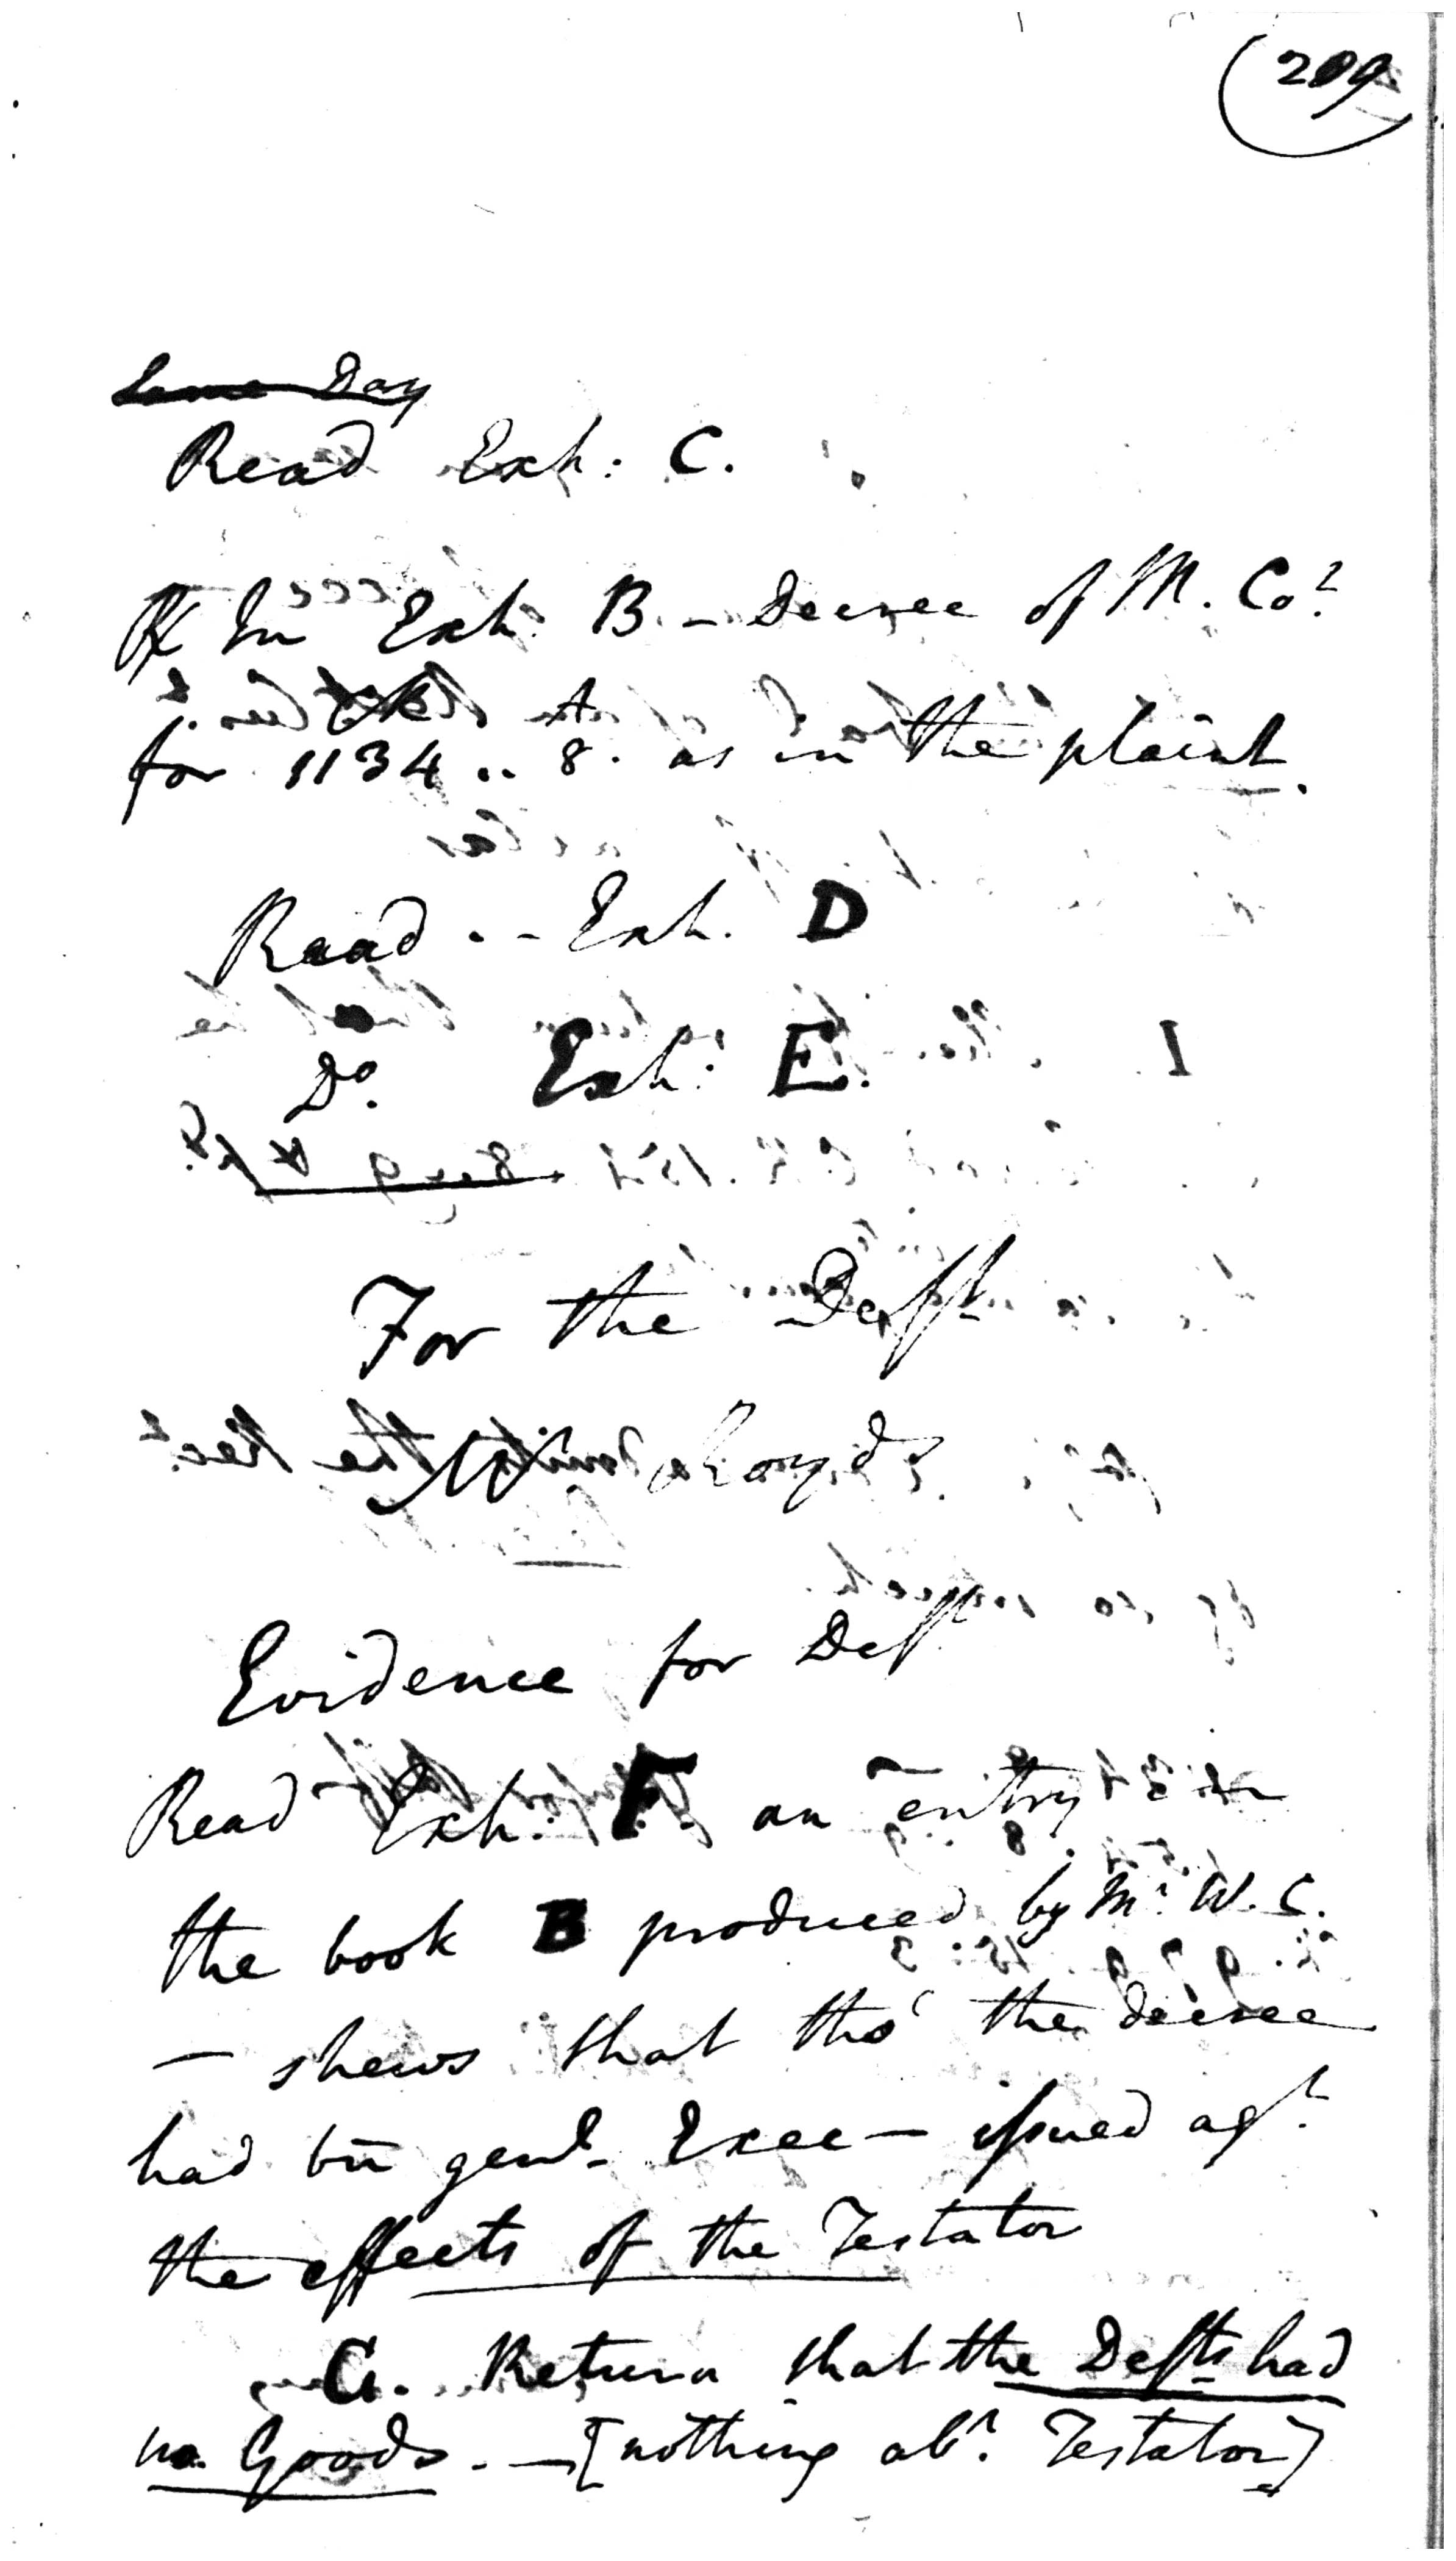 209
Same Day
Read Exh: C.
In Exh. B - Decree of M. Cot
for 1134 .. 8. as in the plaint.
Read .- Exh. D
Do. Exh: E.
For the Deft
Evidence for Deft
Read Exh. F. an entry in
the book B produced by Mr W. C.
- shews that tho' the decree
had bn genl Exec- issued agt
the effects of the Testator
G. Return that the Defts had
no Goods. -[nothing abt. Testator]